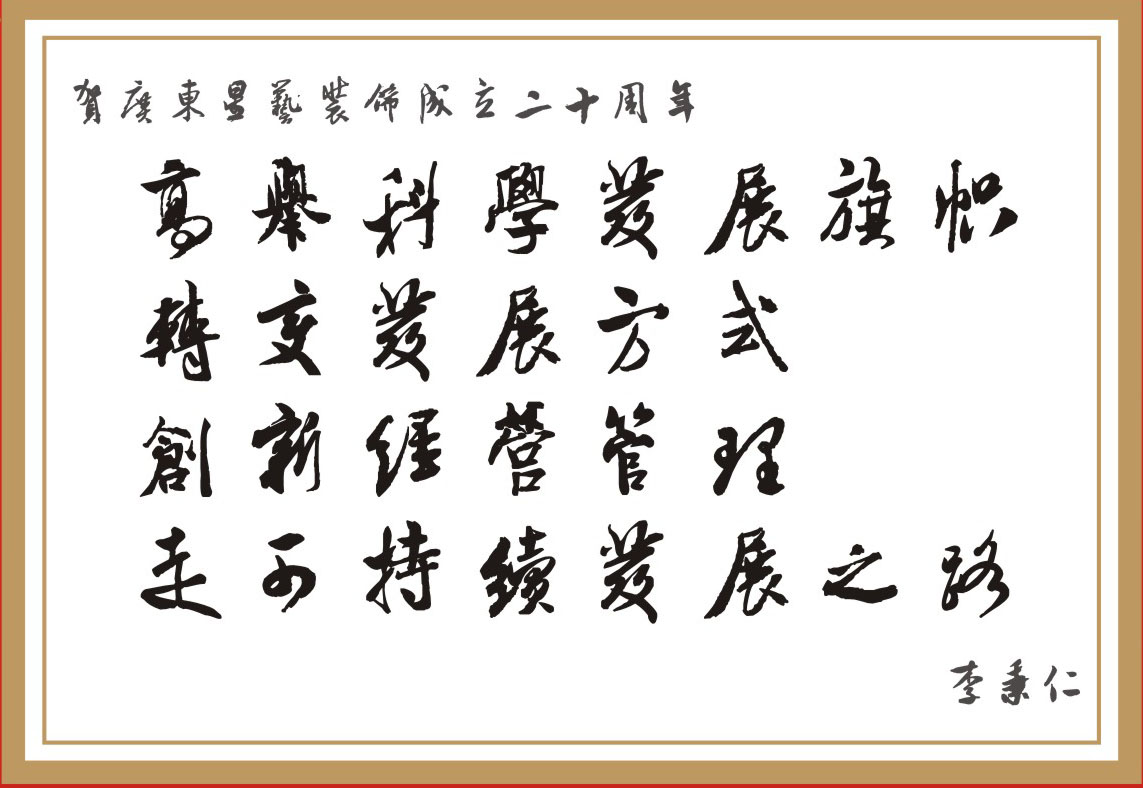 賀廣東星藝裝飾成立二十周年
高舉科學發展旗帜
轉变發展方式
創新經營管理
走可持續發展之路
李秉仁